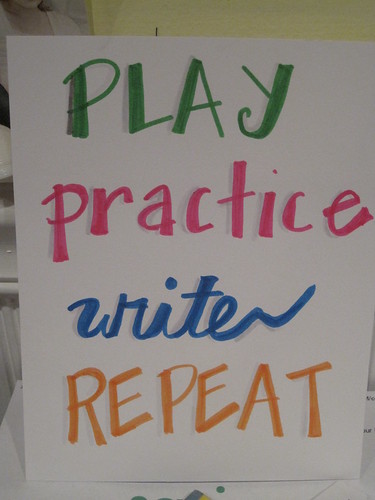 PLAY
practice
write
REPEAT